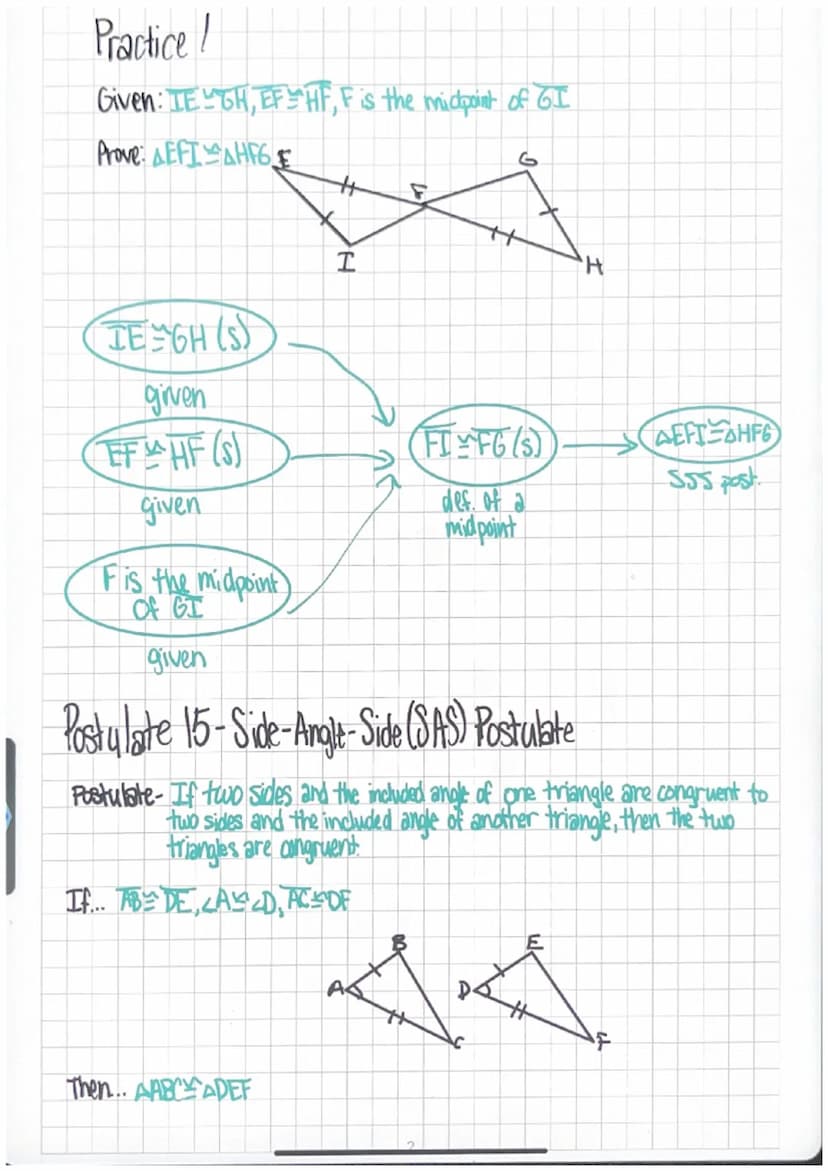 Practice!
Given: IE≅GH, EF≅HF, F is the midpoint of GI
Prove: △EFI≅△HFG
E
G
F
I
H
IE≅GH (s)
given
EF≅HF (s)
given
FI≅FG (s)
def. of a
midpoint
△EFI≅△HFG
SSS post.
F is the midpoint
of GI
given
Postulate 15-Side-Angle-Side (SAS) Postulate
Postulate- If two sides and the included angle of one triangle are congruent to
two sides and the included angle of another triangle, then the two
triangles are congruent.
If... AB≅DE, ∠A≅∠D, AC≅DF
B
E
A
D
C
F
Then... △ABC≅△DEF